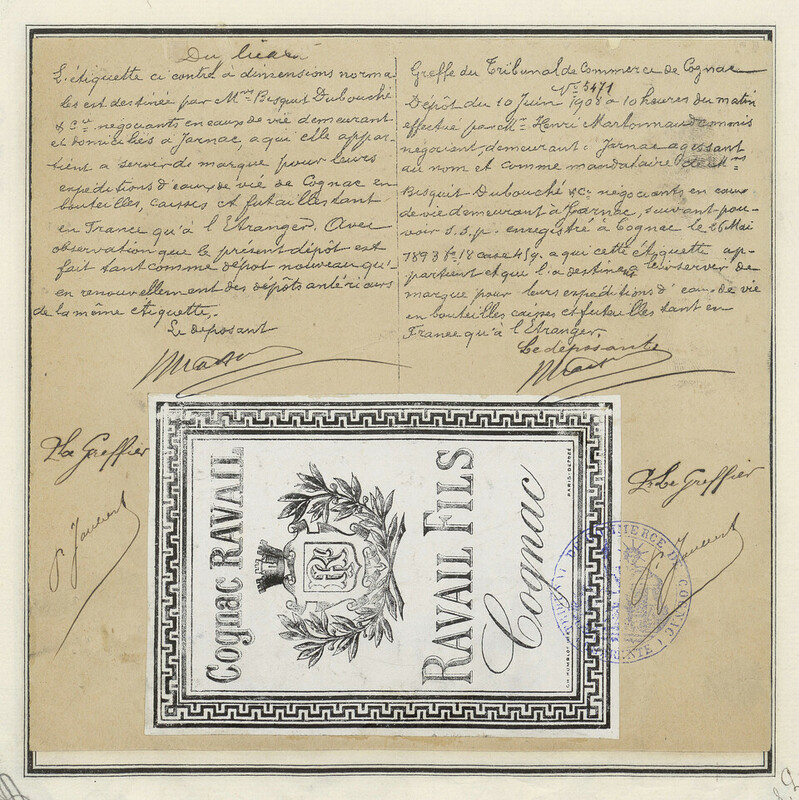 L'étiquette ci contre à dimensions norma-
les est destinée par Mrs Bisquit Dubouché
& Cie négociants en eaux de vie demeurant
et domiciliés à Jarnac, a qui elle appar-
tient a servir de marque pour leurs
expéditions d'eaux de vie de Cognac en
bouteilles, caisses et futailles tant
en France qu'à l'Etranger. Avec
observation que le présent dépôt est
fait tant comme dépôt nouveau qu'
en renouvellement des dépôts antérieurs
de la même étiquette.
Le déposant
Greffe du Tribunal de Commerce de Cognac
No 5471
Dépôt du 10 Juin 1908 à 10 heures du matin
effectué par Mr Henri Martonnaud commis
négociant demeurant à Jarnac agissant
au nom et comme mandataire de Mrs
Bisquit Dubouché & Cie négociants en eaux
de vie demeurant à Jarnac, suivant pou-
voir s.s.p. enregistré à Cognac le 26 Mai
1893 fo 18 case 459. a qui cette étiquette ap-
partient et qui l'a destinée à servir de
marque pour leurs expéditions d'eau de vie
en bouteilles caisses et futailles tant en
France qu'à l'Etranger.
Le déposant
Le Greffier
P. Le Greffier
Cognac RAVAIL
RF
RAVAIL FILS
Cognac
PARIS-DÉPOSÉ
TRIBUNAL DE COMMERCE DE COGNAC
CHARENTE